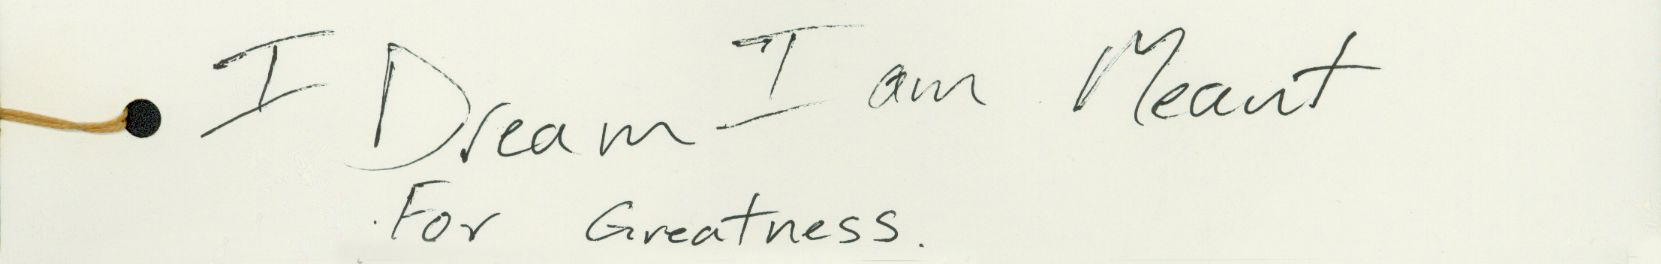 I Dream I am Meant
For Greatness.